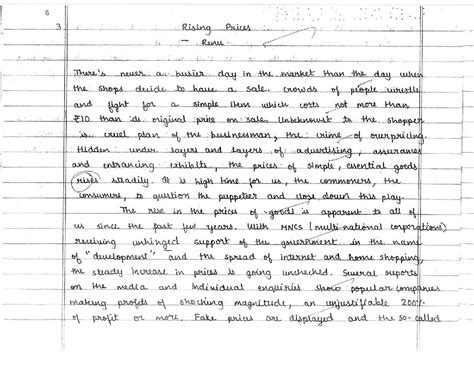 6
3
Rising Prices
- Renu
There's never a busier day in the market than the day when
the shops decide to have a sale. crowds of people wrestle
and fight for a simple item which costs not more than
₹10 than its original price on sale. Unbeknownst to the shopper
is cruel plan of the businessman, the crime of overpricing.
Hidden under layers and layers of advertising, assurances
and entrancing exhibits, the prices of simple, essential goods
rises steadily. It is high time for us, the commoners, the
consumers, to question the puppeteer and close down this play.
The rise in the prices of goods is apparent to all of
us since the past few years. With MNCS (multi national corporations)
receiving unhinged support of the government in the name
of "development" and the spread of internet and home shopping,
the steady increase in prices is going unchecked. Several reports
on the media and individual enquiries show popular companies
making profits of shocking magnitude, an unjustifiable 200%
of profit or more. Fake prices are displayed and the so-called